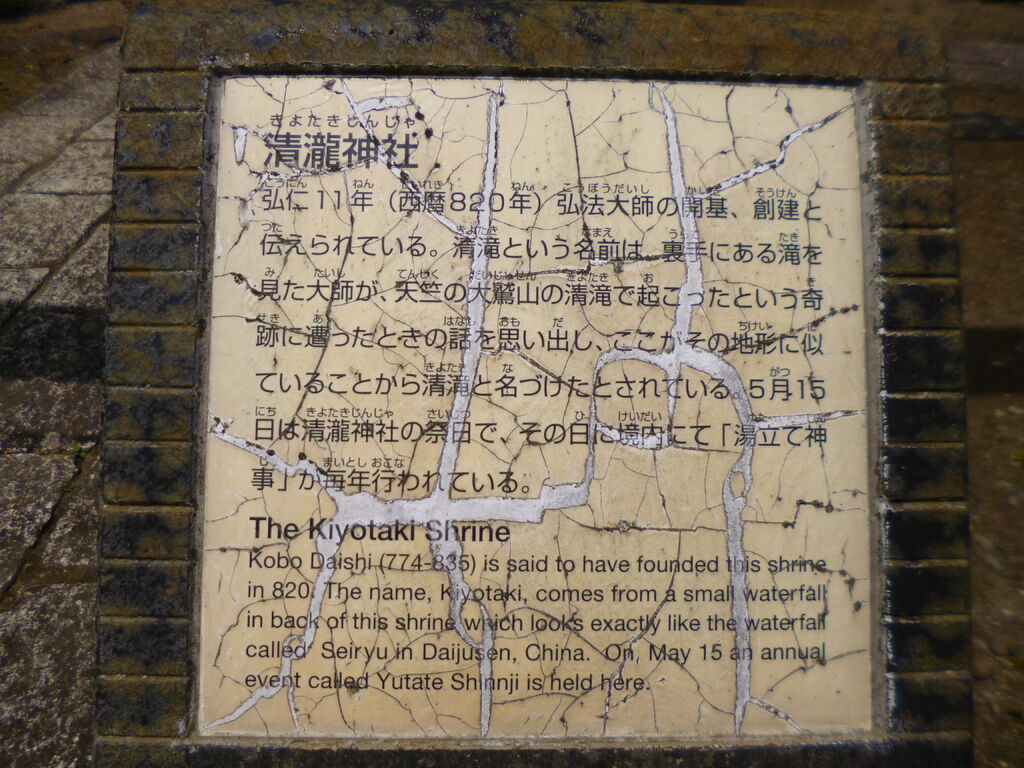 きよたきじんじゃ
清瀧神社
弘仁11年（西暦820年）弘法大師の開基、創建と
伝えられている。清滝という名前は、裏手にある滝を
見た大師が、天竺の大鷲山の清滝で起こったという奇
跡に遭ったときの話を思い出し、ここがその地形に似
ていることから清滝と名づけたとされている。5月15
日は清瀧神社の祭日で、その日に境内にて「湯立て神
事」が毎年行われている。
The Kiyotaki Shrine
Kobo Daishi (774-835) is said to have founded this shrine
in 820. The name, Kiyotaki, comes from a small waterfall
in back of this shrine which looks exactly like the waterfall
called Seiryu in Daijusen, China. On, May 15 an annual
event called Yutate Shinnji is held here.